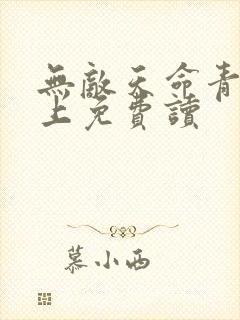 無敵天命青
上免費讀
慕小西